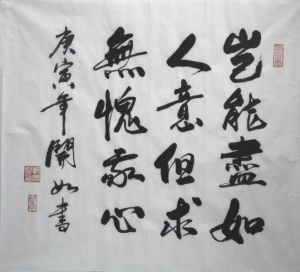 豈能盡如
人意但求
無愧我心
庚寅年開如書